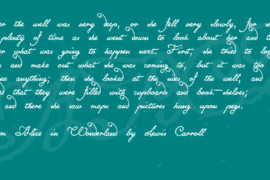 er the well was very deep, or she fell very slowly, for
plenty of time as she went down to look about her and to
er what was going to happen next. First, she tried to loo
and make out what she was coming to, but it was too
see anything; then she looked at the sides of the well, and
d that they were filled with cupboards and book-shelves;
and there she saw maps and pictures hung upon pegs.
om Alice in Wonderland by Lewis Carroll